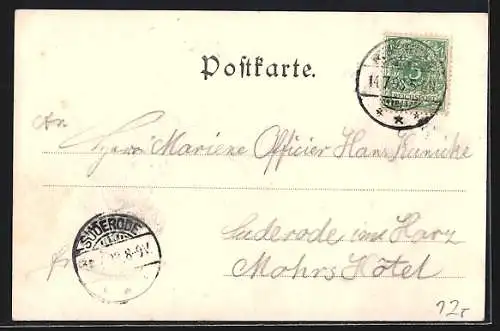 Postkarte.
14.7.98.5
5
REICHSPOST
An
Herrn Marine Officier Hans Kunicke
SUDERODE
8-9V.
Suderode im Harz
Mohrs Hôtel
12,-